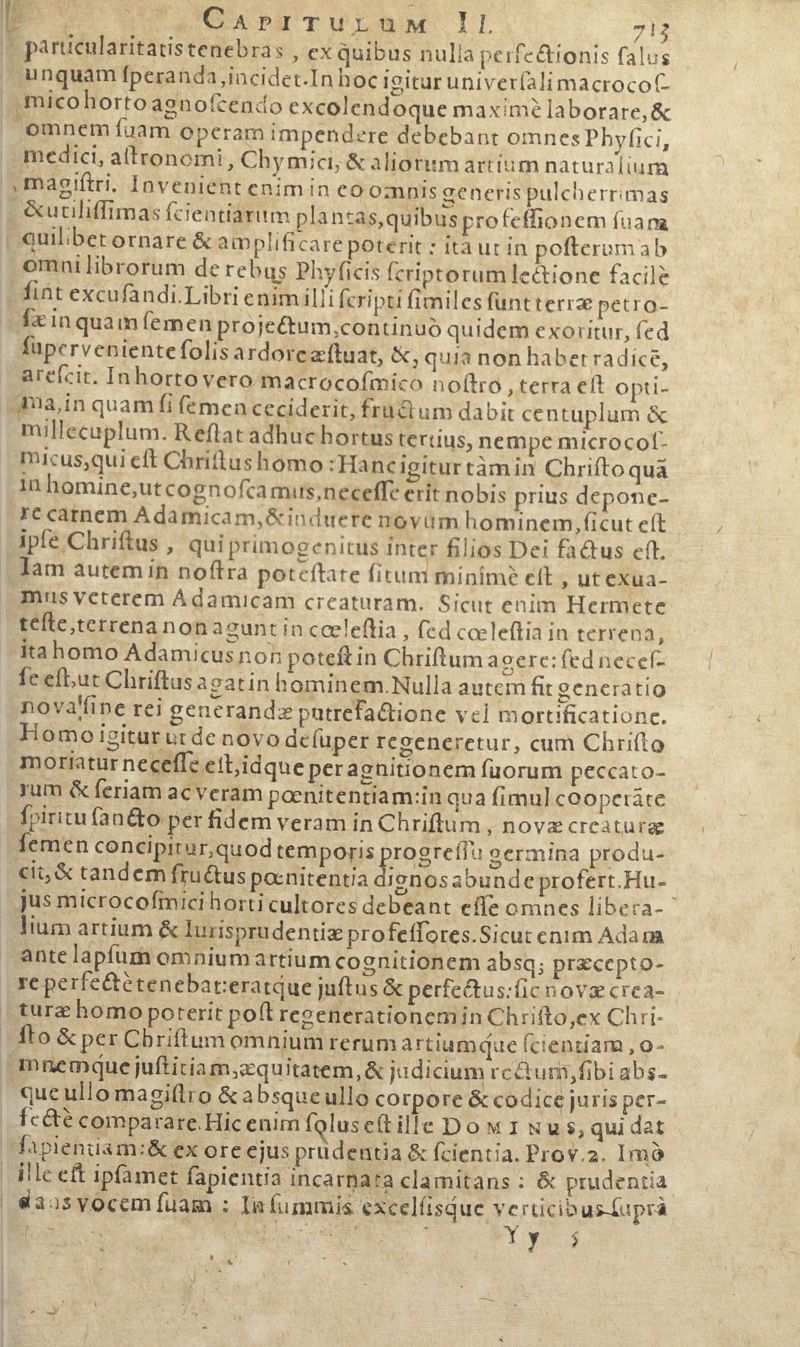 CAPITULUM II. 713
particularitatis tenebras, ex quibus nulla perfectionis salus
unquam ſperanda, incidet. In hoc igitur univerſali macrocoſ-
mico horto agnoſcendo excolendoque maximè laborare, &
omnem ſuam operam impendere debebant omnes Phyſici,
medici, aſtronomi, Chymici, & aliorum artium naturalium
magiſtri. Invenient enim in eo omnis generis pulcherrimas
& utiliſſimas ſcientiarum plantas, quibus profeſſionem ſuam
quilibet ornare & amplificare poterit: ita ut in poſterum ab
omni librorum de rebus Phyſicis ſcriptorum lectione facilè
ſint excuſandi. Libri enim illi ſcripti ſimiles ſunt terræ petro-
ſæ in quam ſemen projectum, continuò quidem exoritur, ſed
ſuperveniente ſolis ardore æſtuat, &, quia non habet radicē,
areſcit. In horto vero macrocoſmico noſtro, terra eſt opti-
ma, in quam ſi ſemen ceciderit, fructum dabit centuplum &
millecuplum. Reſtat adhuc hortus tertius, nempe microcoſ-
micus, qui eſt Chriſtus homo: Hanc igitur tàm in Chriſto quā
in homine, ut cognoſcamus, neceſſe erit nobis prius depone-
re carnem Adamicam, & induere novum hominem, ſicut eſt
ipſe Chriſtus, qui primogenitus inter filios Dei factus eſt.
Iam autem in noſtra poteſtate ſitum minimè eſt, ut exua-
mus veterem Adamicam creaturam. Sicut enim Hermete
teſte, terrena non agunt in cœleſtia, ſed cœleſtia in terrena,
ita homo Adamicus non poteſt in Chriſtum agere: ſed neceſ-
ſe eſt, ut Chriſtus agat in hominem. Nulla autem fit generatio
nova ſine rei generandæ putrefactione vel mortificatione.
Homo igitur ut de novo deſuper regeneretur, cum Chriſto
moriatur neceſſe eſt, idque per agnitionem ſuorum peccato-
rum & ſeriam ac veram pœnitentiam: in qua ſimul cooperāte
ſpiritu ſancto per fidem veram in Chriſtum, novæ creaturæ
ſemen concipitur, quod temporis progreſſu germina produ-
cit, & tandem fructus pœnitentia dignos abunde profert. Hu-
jus microcoſmici horti cultores debeant eſſe omnes libera-
lium artium & Iurisprudentiæ profeſſores. Sicut enim Adam
ante lapſum omnium artium cognitionem absq; præcepto-
re perfectè tenebat: eratque juſtus & perfectus: ſic novæ crea-
turæ homo poterit poſt regenerationem in Chriſto, ex Chri-
ſto & per Chriſtum omnium rerum artiumque ſcientiam, o-
mnemque juſtitiam, æquitatem, & judicium rectum, ſibi abs-
que ullo magiſtro & absque ullo corpore & codice juris per-
fectè comparare. Hic enim ſolus eſt ille DOMINUS, qui dat
ſapientiam: & ex ore ejus prudentia & ſcientia. Prov. 2. Imò
ille eſt ipſamet ſapientia incarnata clamitans: & prudentia
dans vocem ſuam: In ſummis excelſisque verticibus ſuprà
Yy 5